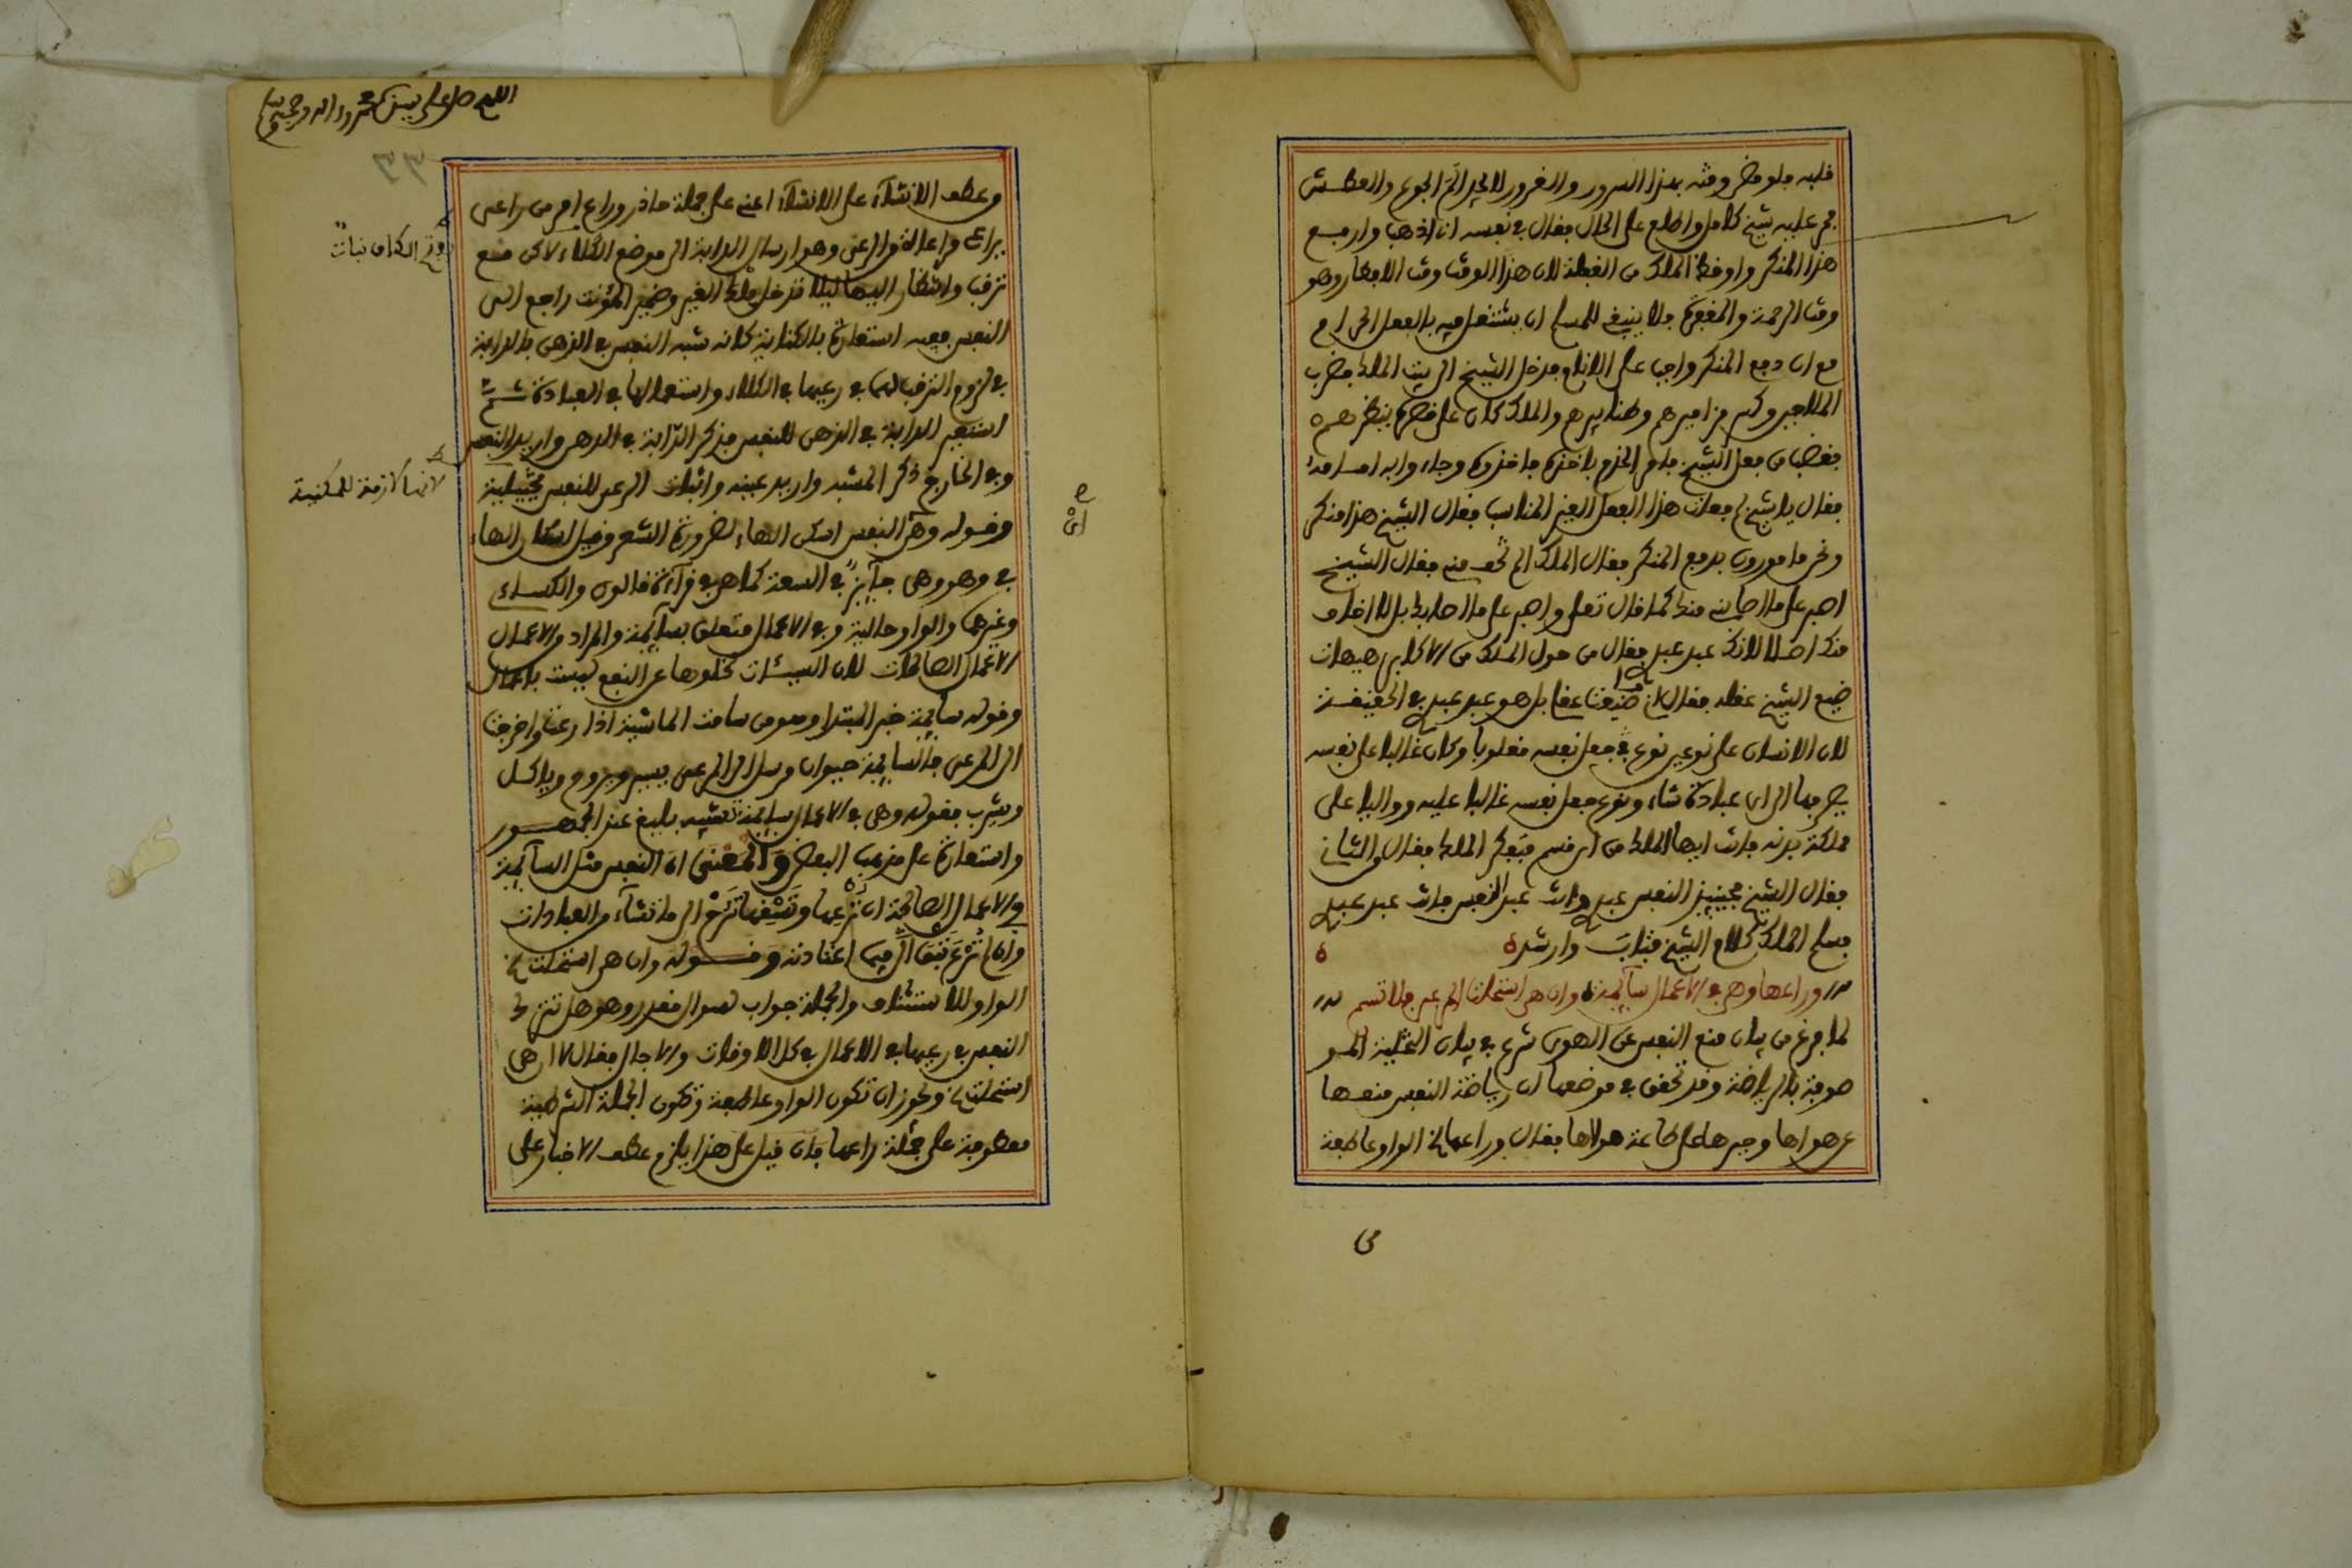 قلبه فلو مضى وقته بهذا السرور والغرور لا يجد الم الجوع والعطش
فمر عليه شيخ كامل واطلع على الحال فقال في نفسه ان اذهب وارفع
هذا المنكر واوقظ الملك من الغفلة لان هذا الوقت وقت الافطار وهو
وقت الرحمة والمغفرة فلا ينبغي للمسلم ان يشتغل فيه بالفعل الحرام
مع ان دفع المنكر واجب على الانام فدخل الشيخ الى بيت الملك فضرب
الملاعبين وكسر مزاميرهم وطنابيرهم والملك كان على قصره ينظرهم
فغضب من فعل الشيخ فامر الخدم باخذه فاخذوه وجاءوا به امامه
فقال يا شيخ لم فعلت هذا الفعل الغير المناسب فقال الشيخ هذا منكر
ونحن مامورون بدفع المنكر فقال الملك الم تخف مني فقال الشيخ
اصبر على ما اصابني منك كما قال تعلى واصبر على ما اصابك بل لا اخاف
منك اصلا لانك عبد عبدي فقال من حول الملك من الاكابر هيهات
ضيع الشيخ عقله فقال لا ما ضيعت عقلي بل هو عبد عبدي في الحقيقة
لان الانسان على نوعين نوع جعل نفسه مغلوبا وكان غالبا على نفسه
يصرفها الى اي عبادة شاء ونوع جعل نفسه غالبا عليه وواليا على
مملكة بدنه فانت ايها الملك من اي قسم فتفكر الملك فقال والثاني
فقال الشيخ فحينئذ النفس عبدي وانت عبد النفس فانت عبد عبدي
فسلم الملك كلام الشيخ فتاب وارشده
وراعها وهي في الاعمال سآئمة وان هي استحلت المرعى فلا تسم
لما فرغ من بيان منع النفس عن الهوى شرع في بيان التحلية المو
صوفة بالرياضة وقد تحقق في موضعها ان رياضة النفس منعها
عن هواها وجبرها على طاعة مولاها فقال وراعها الخ الواو عاطفة
و
اللهم صل على سيدنا محمد واله وصحبه وسلم
٣٣
وعطف الانشآء على الانشآء اعني على جملة حاذر وراع امر من راعى
يراعى والرعى وهو ارسال الدابة الى موضع الكلاء لاكن مع
ترقب وانتظار اليها ليلا تدخل ملك الغير وضمير المؤنث راجع الى
النفس ففيه استعارة بالكناية كانه شبه النفس في الذهن بالدابة
في لزوم الترقب لهما في رعيهما في الكلاء واستعمالها في العبادة ثم
استعير الدابة في الذهن للنفس فذكر الدابة في الذهن واريد النفس
وفي الخارج ذكر المشبه واريد عينه واثبات الرعي للنفس تخييلية
وقوله وهي النفس اسكن الهاء لضرورة الشعر وقيل اسكان الهاء
في وهو وهي جآئز في السعة كما هي في قرآءة قالون والكساءي
وغيرهما والواو حالية وفي الاعمال متعلق بسآئمة والمراد والاعمال
الاعمال الصالحات لان السيئات لخلوها عن النفع ليست باعمال
وقوله سآئمة خبر المبتدا وهو من سامت الماشية اذا رعت واخرجت
الى المرعى فالسآئمة حيوان مرسل الى المرعى يسير ويروم وياكل
ويشرب فقوله وهي في الاعمال سآئمة تشبيه بليغ عند الجمهور
واستعارة على مذهب البعض والمعنى ان النفس مثل السآئمة
والاعمال الصالحة ان ترعها وتسقها ترح الى ما تشآء من العبادات
وقوله وان هي استحلت
الواو للاستئناف والجملة جواب لسوال مقدر وهو هل تترك
النفس في رعيها في الاعمال في كل الاوقات والاحال فقال لا ان هي
استحلت الخ ويجوز ان تكون الواو عاطفة وتكون الجملة الشرطية
معطوفة على جملة راعها فان قيل على هذا يلزم عطف الاخبار على
لانها لازمة للمكنية
اي